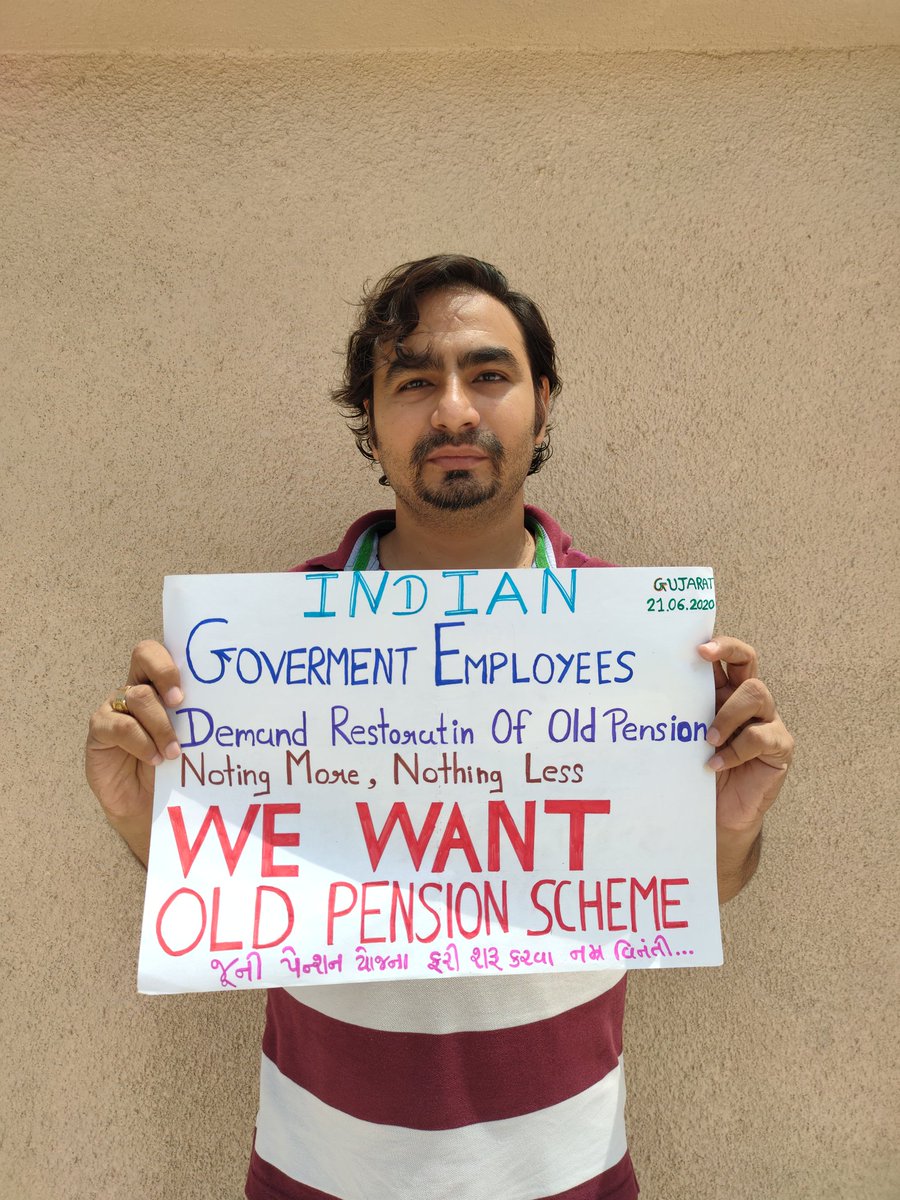 INDIAN
GUJARAT
21.06.2020
GOVERMENT EMPLOYEES
Demand Restoratin Of Old Pension
Noting More, Nothing Less
WE WANT
OLD PENSION SCHEME
જૂની પેન્શન યોજના ફરી શરૂ કરવા નમ્ર વિનંતી...